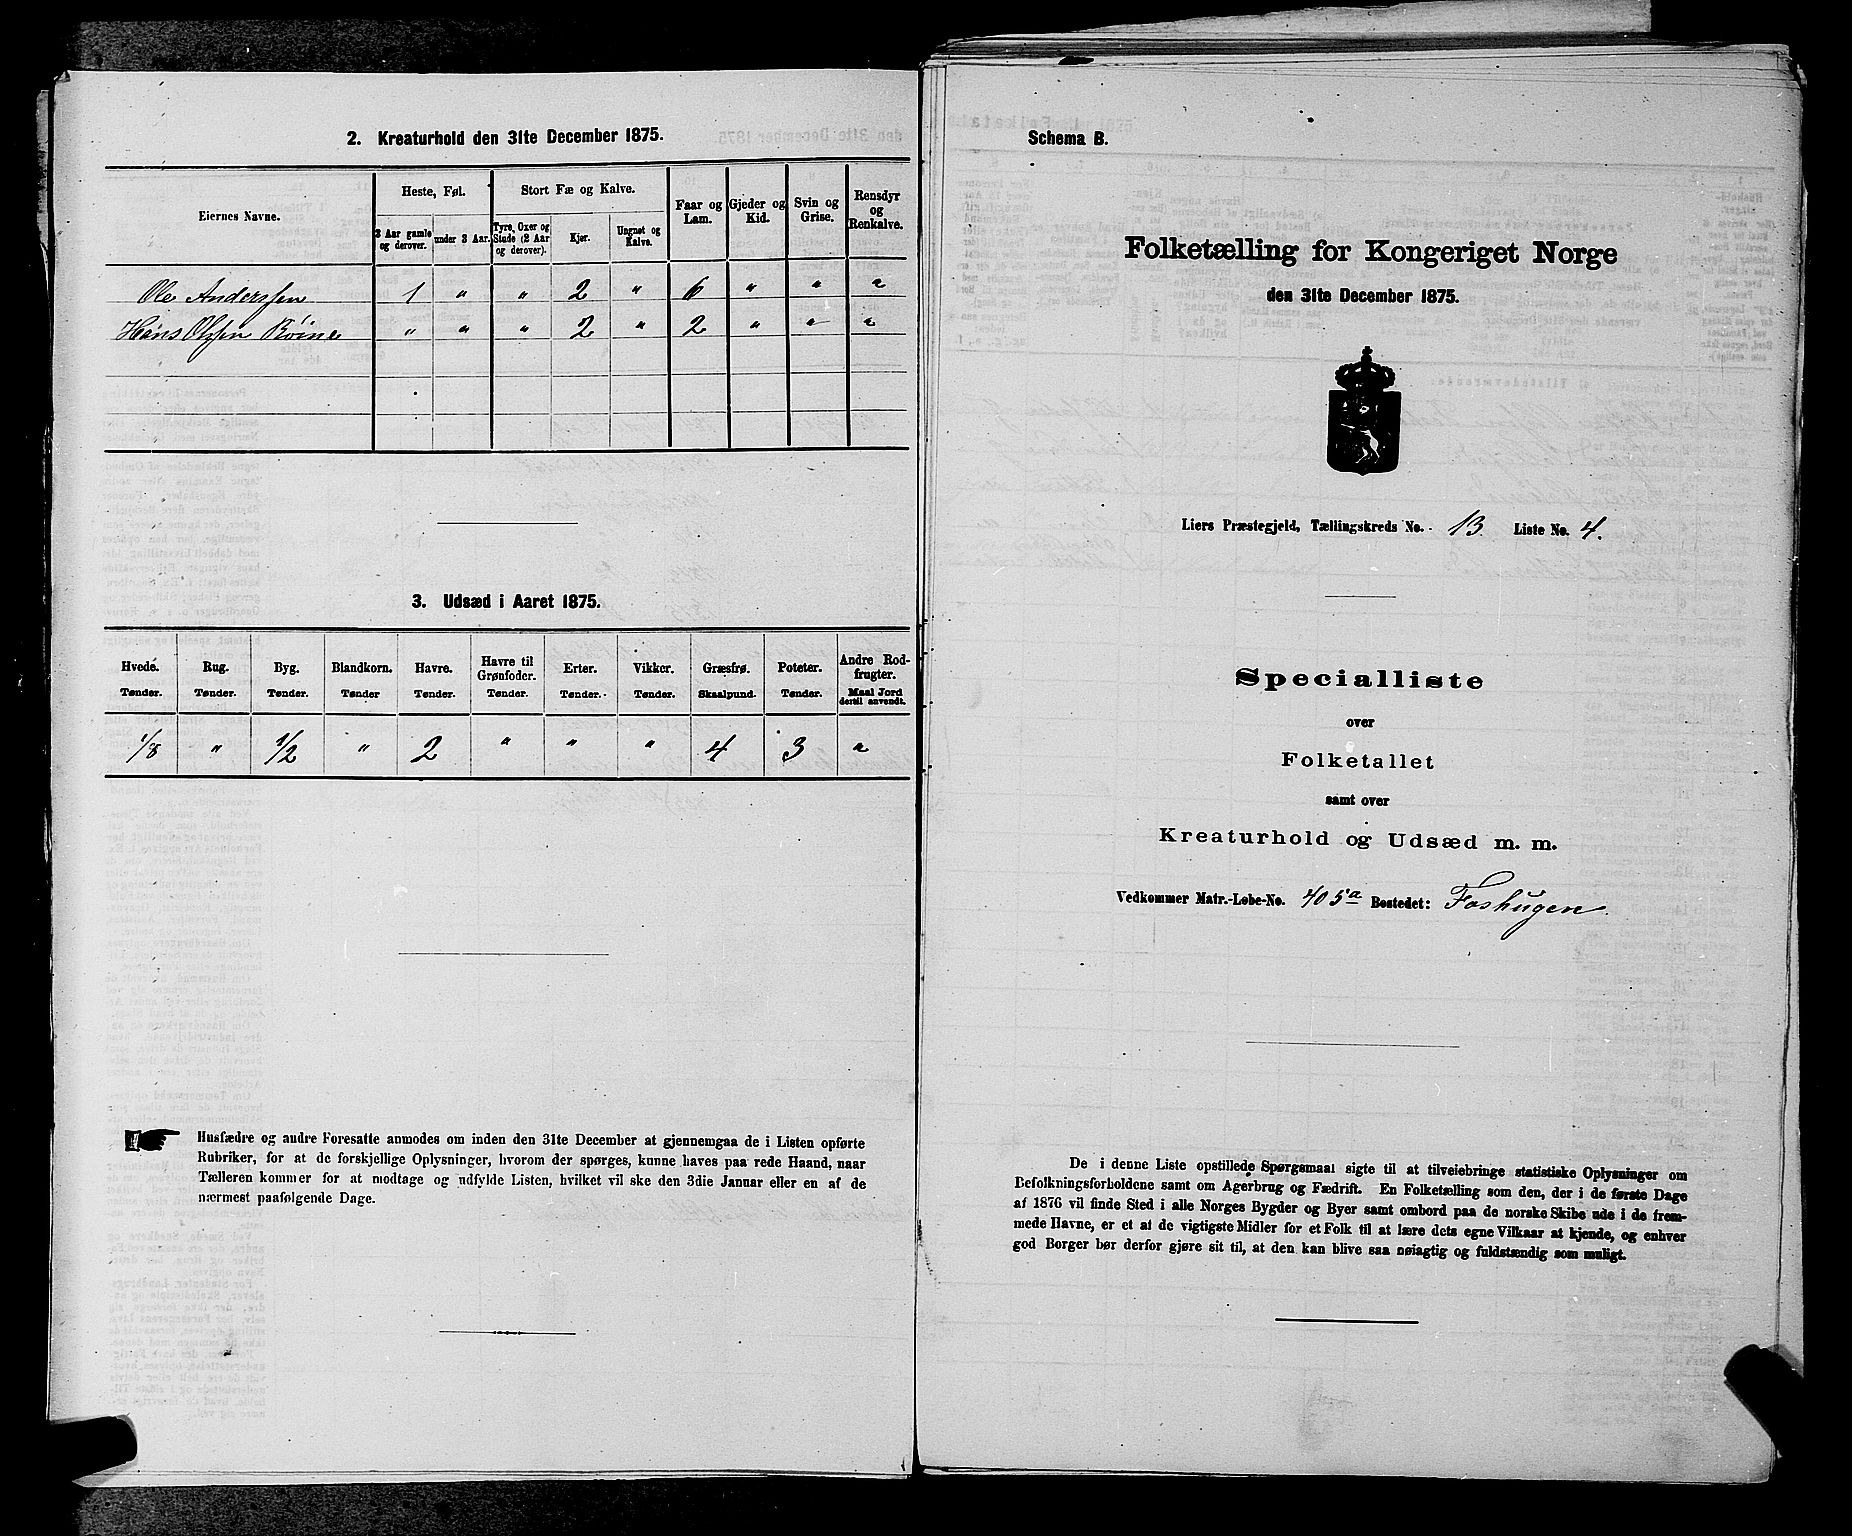 2. Kreaturhold den 31te December 1875.
Eiernes Navne.
Heste, Føl.
3 Aar gamle og derover.
under 3 Aar.
Stort Fæ og Kalve.
Tyre, Oxer og Stude (2 Aar og derover).
Kjør.
Ungnøt og Kalve.
Faar og Lam.
Gjeder og Kid.
Svin og Grise.
Rensdyr og Renkalve.
Ole Anderssen 1 " " 2 " 6 " " "
Hans Olssen " " " 2 " 2 " " "
3. Udsæd i Aaret 1875.
Hvede. Rug. Byg. Blandkorn. Havre. Havre til Grønfoder. Erter. Vikker. Græsfrø. Poteter. Andre Rodfrugter.
Tønder. Tønder. Tønder. Tønder Tønder. Tønder. Tønder. Tønder. Skaalpund. Tønder. Maal Jord dertil anvendt.
1/8 " 1/2 " 2 " " " 4 3 "
Husfædre og andre Foresatte anmodes om inden den 31te December at gjennemgaa de i Listen opførte
Rubriker, for at de forskjellige Oplysninger, hvorom der spørges, kunne haves paa rede Haand, naar
Tælleren kommer for at modtage og udfylde Listen, hvilket vil ske den 3die Januar eller en af de
nærmest paafølgende Dage.
Schema B.
Folketælling for Kongeriget Norge
den 31te December 1875.
Liers Præstegjeld, Tællingskreds No. 13. Liste No. 4.
Specialliste
over
Folketallet
samt over
Kreaturhold og Udsæd m. m.
Vedkommer Matr.-Løbe-No. 405a Bostedet: Foshugen.
De i denne Liste opstillede Spørgsmaal sigte til at tilveiebringe statistiske Oplysninger om
Befolkningsforholdene samt om Agerbrug og Fædrift. En Folketælling som den, der i de første Dage
af 1876 vil finde Sted i alle Norges Bygder og Byer samt ombord paa de norske Skibe ude i de frem-
mede Havne, er et af de vigtigste Midler for et Folk til at lære dets egne Vilkaar at kjende, og enhver
god Borger bør derfor gjøre sit til, at den kan blive saa nøiagtig og fuldstændig som muligt.